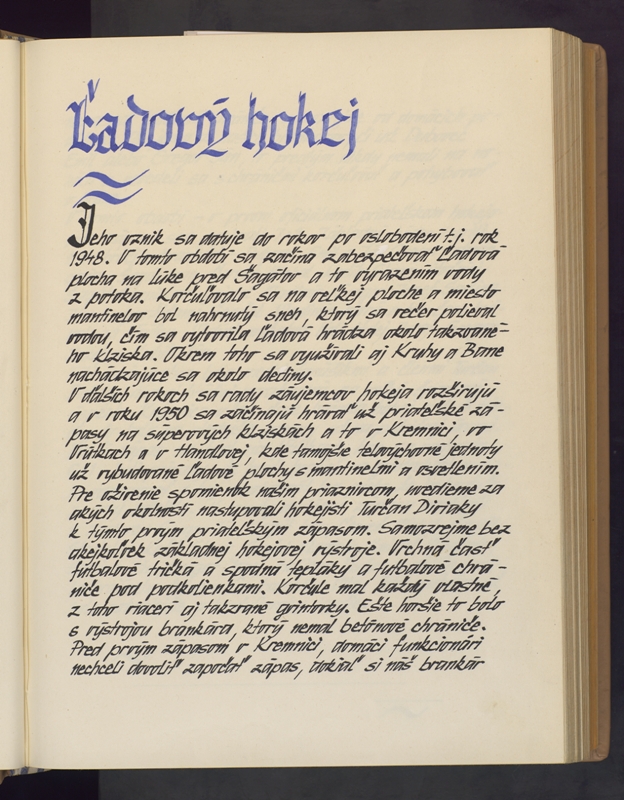 Ľadový hokej
Jeho vznik sa datuje do rokov po oslobodení t.j. rok
1948. V tomto období sa začína zabezpečovať Ľadová
plocha na lúke pred Šagátov a to vyrazením vody
z potoka. Korčuľovalo sa na veľkej ploche a miesto
mantinelov bol nahrnutý sneh, ktorý sa večer polieval
vodou, čím sa vytvorila Ľadová hrádza okolo takzvané-
ho klziska. Okrem toho sa využívali aj Kruhy a Bane
nachádzajúce sa okolo dediny.
V ďalších rokoch sa rady záujemcov hokeja rozširujú
a v roku 1950 sa začínajú hrávať už priateľské zá-
pasy na súperových klziskách a to v Kremnici, vo
Vrútkach a v Handlovej, kde tamojšie telovýchovné jednoty
už vybudované Ľadové plochy s mantinelmi a osvetlením.
Pre oživenie spomienok našim priaznivcom, uvedieme za
akých okolností nastupovali hokejisti Turčan Diviaky
k týmto prvým priateľským zápasom. Samozrejme bez
akejkoľvek základnej hokejovej výstroje. Vrchná časť
futbalové tričká a spodná tepláky a futbalové chrá-
niče pod podkolienkami. Korčule mal každý vlastné,
z toho viacerí aj takzvané gvintovky. Ešte horšie to bolo
s výstrojou brankára, ktorý nemal betónové chrániče.
Pred prvým zápasom v Kremnici, domáci funkcionári
nechceli dovoliť započať zápas, dokiaľ si náš brankár